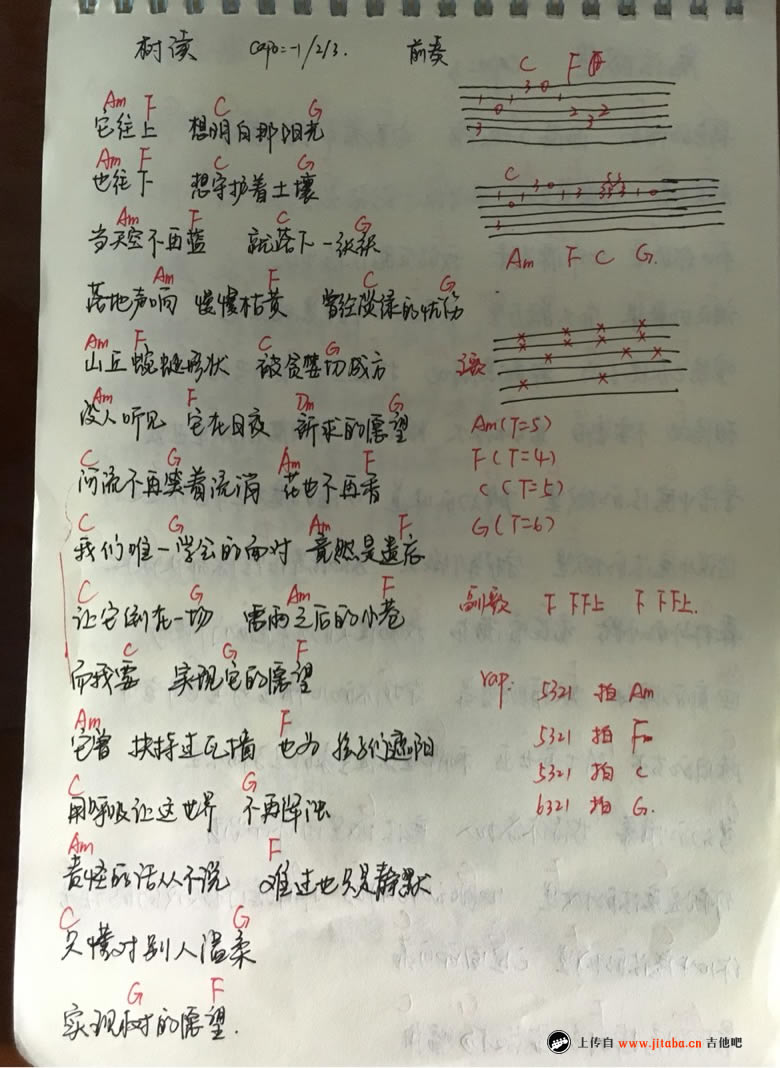 树读 capo=-1/2/3. 前奏
C F
Am F C G
它往上 想明白那阳光
Am F C G
也往下 想守护着土壤
C
Am F C G
当天空不再蓝 就落下一张张
Am F C G.
Am F C G
落地声响 慢慢枯黄 曾经淡绿的忧伤
Am F C G
山丘蜿蜒形状 被贪婪切成方
主歌
Am F Dm G
没人听见 它在日夜 祈求的愿望
Am(T=5)
F(T=4)
C(T=5)
G(T=6)
C G Am F
河流不再笑着流淌 花也不再香
C G Am F
我们唯一学会的面对 竟然是遗忘
C G Am F
让它倒在一场 雷雨之后的小巷
副歌 下 下下上 下 下下上.
C G F
而我要 实现它的愿望
rap: 5321 拍 Am
5321 拍 Fm
5321 拍 C
6321 拍 G.
Am F
它曾 扶持过瓦墙 也为 孩子们遮阳
C G
用呼吸让这世界 不再浑浊
Am F
责怪的话从不说 难过也只是静默
C G
只懂对别人温柔
G F
实现树的愿望.
上传自 www.jitaba.cn 吉他吧